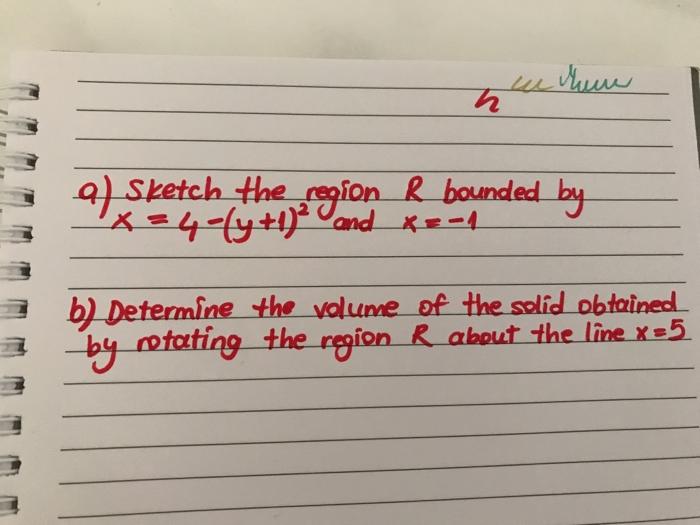 a) Sketch the region R bounded by
x = 4-(y+1)² and x=-1
b) Determine the volume of the solid obtained
by rotating the region R about the line x=5